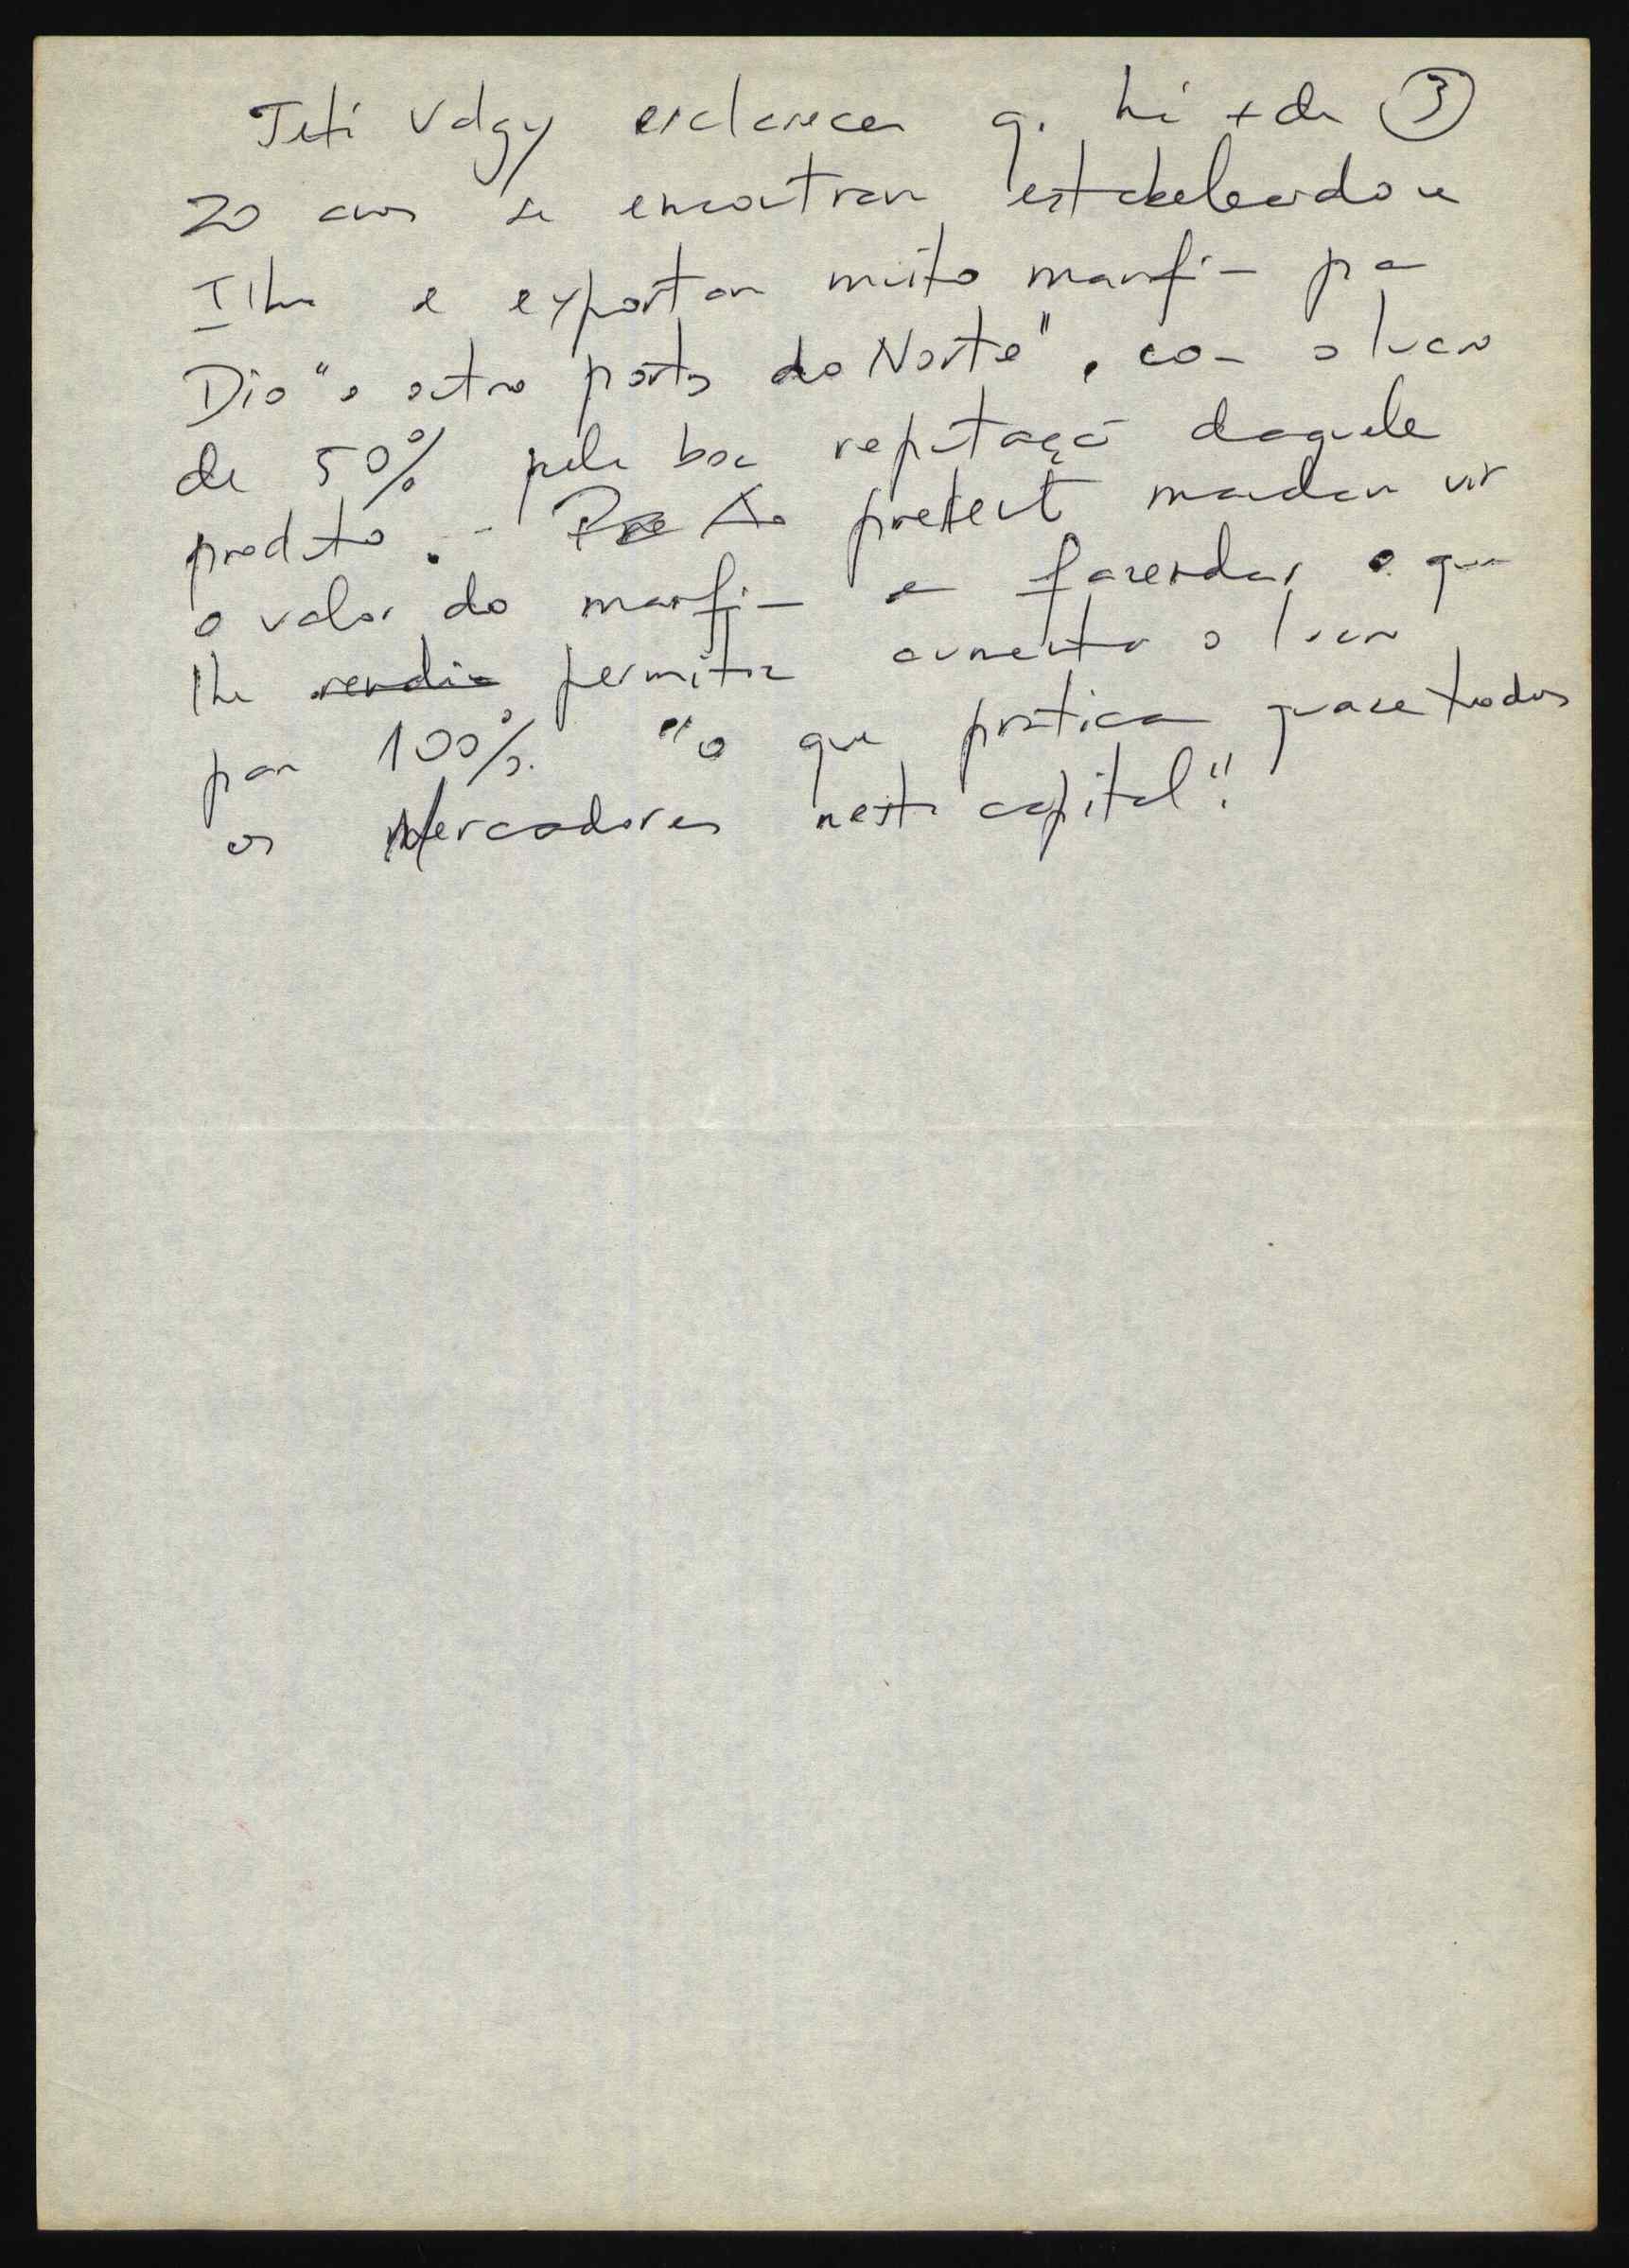 Teti Valgy esclarecer q. há + de ③
20 anos se encontrava estabelecido na
Ilha e exportava muito marfim pa
Dio "e outros portos do Norte", com o lucro
de 50% pela boa reputação daquele
produto. - Pre Ao pretext mandar vir
o valor do marfim em fazendas o que
lhe rendia permitia aumentar o lucro
para 100% "o que pratica quase todos
os Mercadores nesta capital".